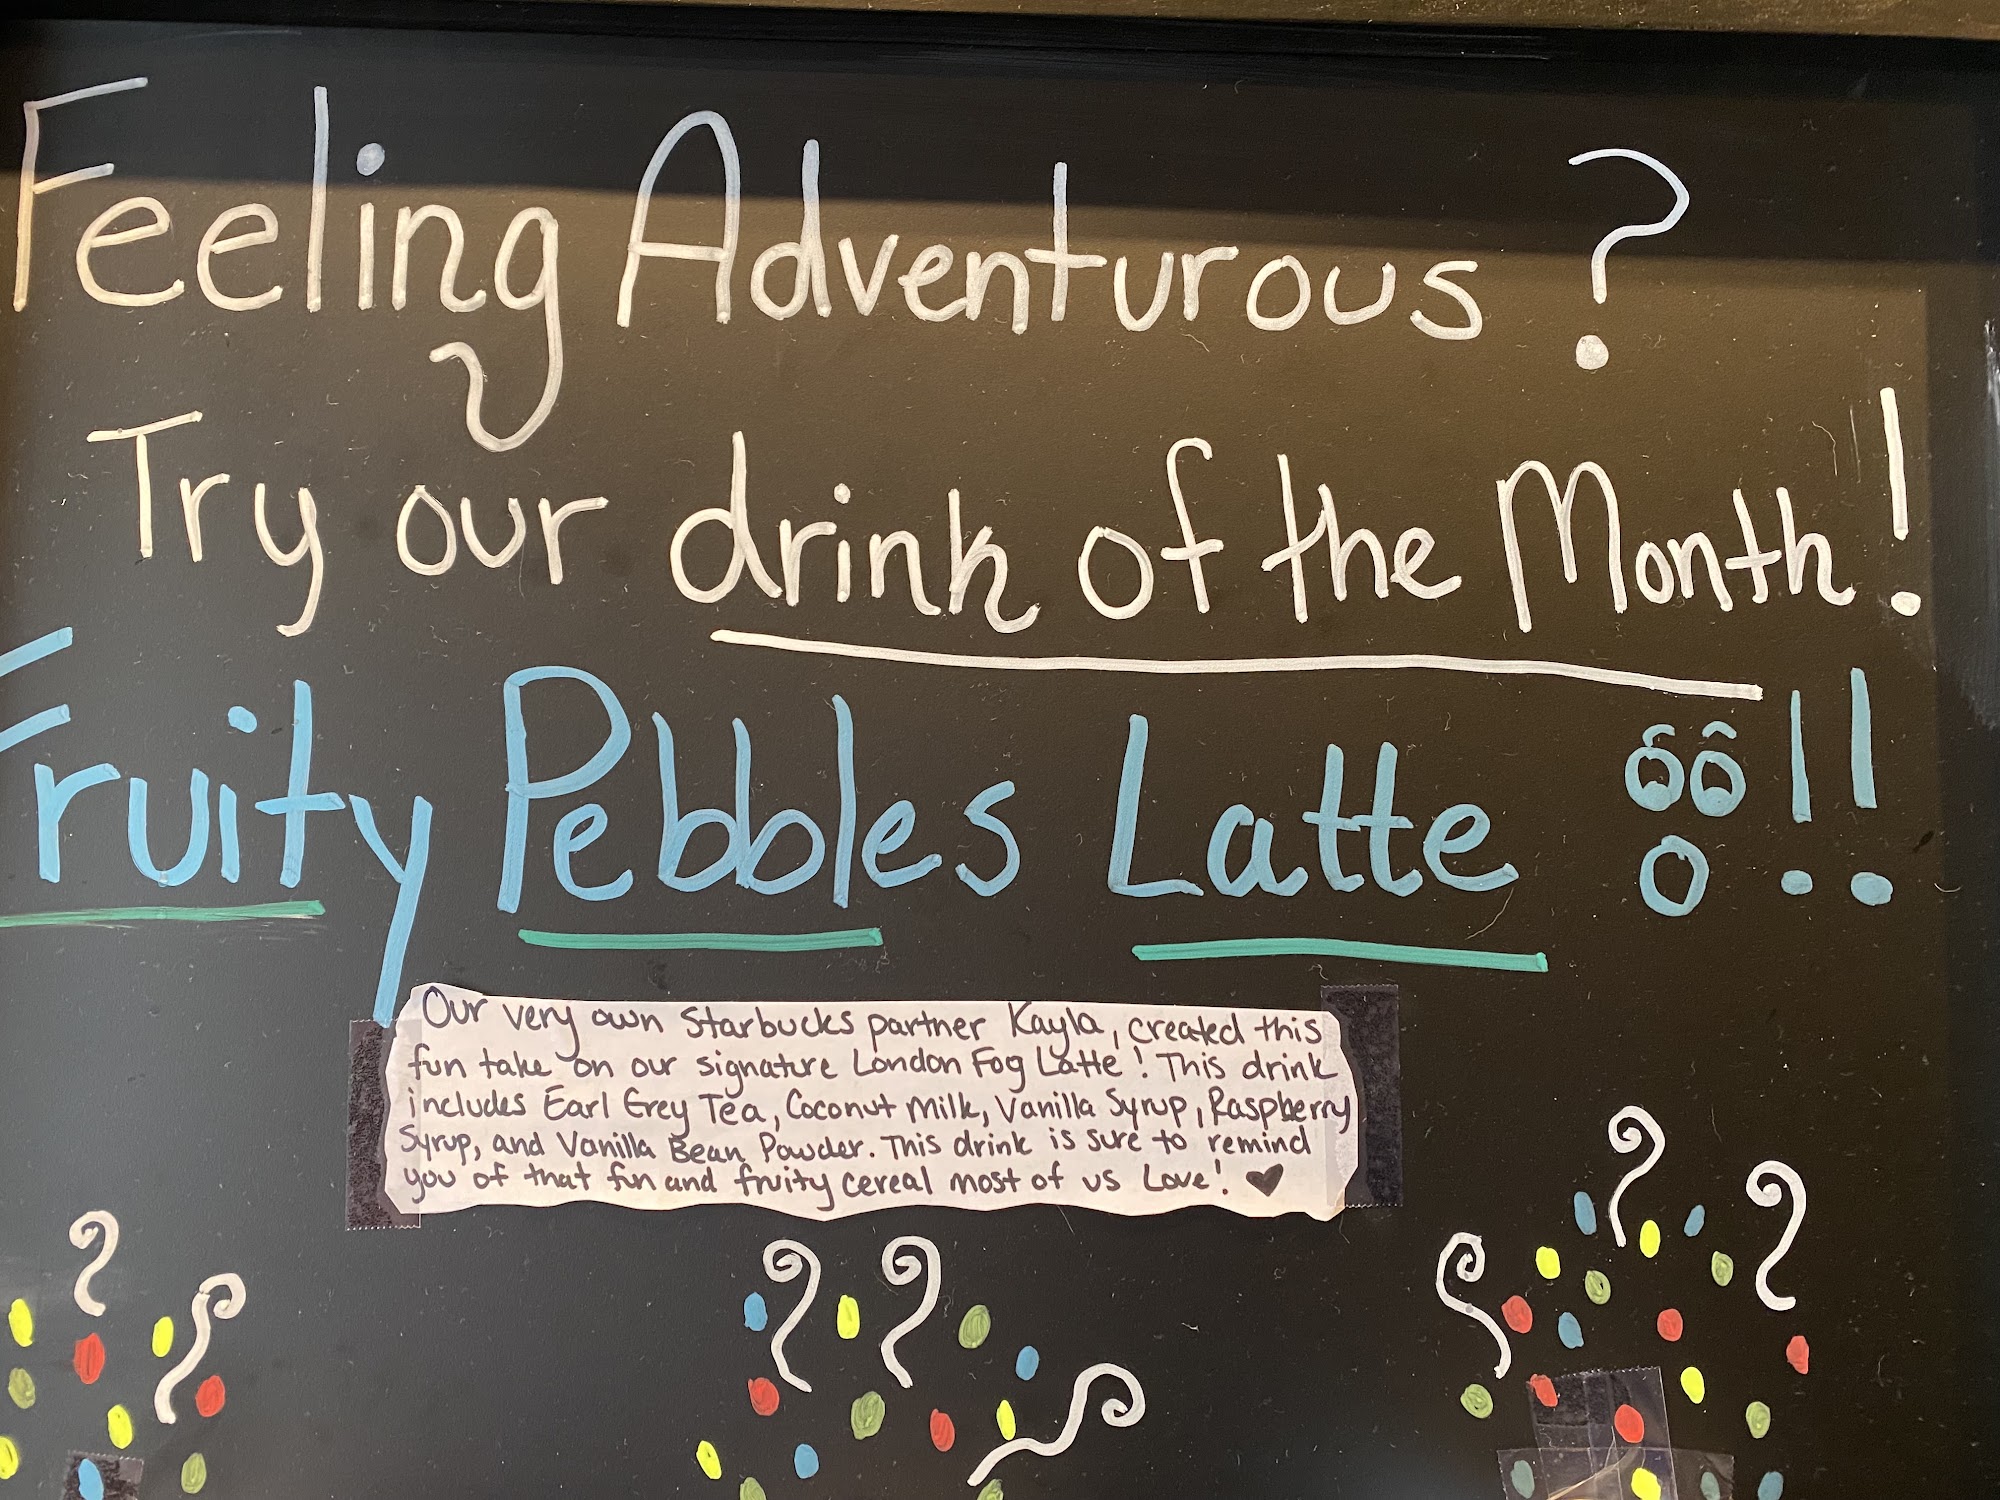 Feeling Adventurous?
Try our drink of the Month!
Fruity Pebbles Latte !!
Our very own Starbucks partner Kayla, created this
fun take on our signature London Fog Latte! This drink
includes Earl Grey Tea, Coconut Milk, Vanilla Syrup, Raspberry
Syrup, and Vanilla Bean Powder. This drink is sure to remind
you of that fun and fruity cereal most of us Love! ♥